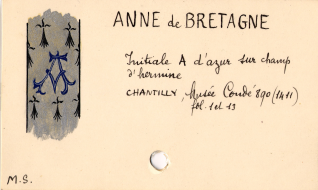 ANNE de BRETAGNE
Initiale A d'azur sur champ
d'hermine
CHANTILLY, Musée Condé 890 (1411)
fol. 1 et 13
M.S.